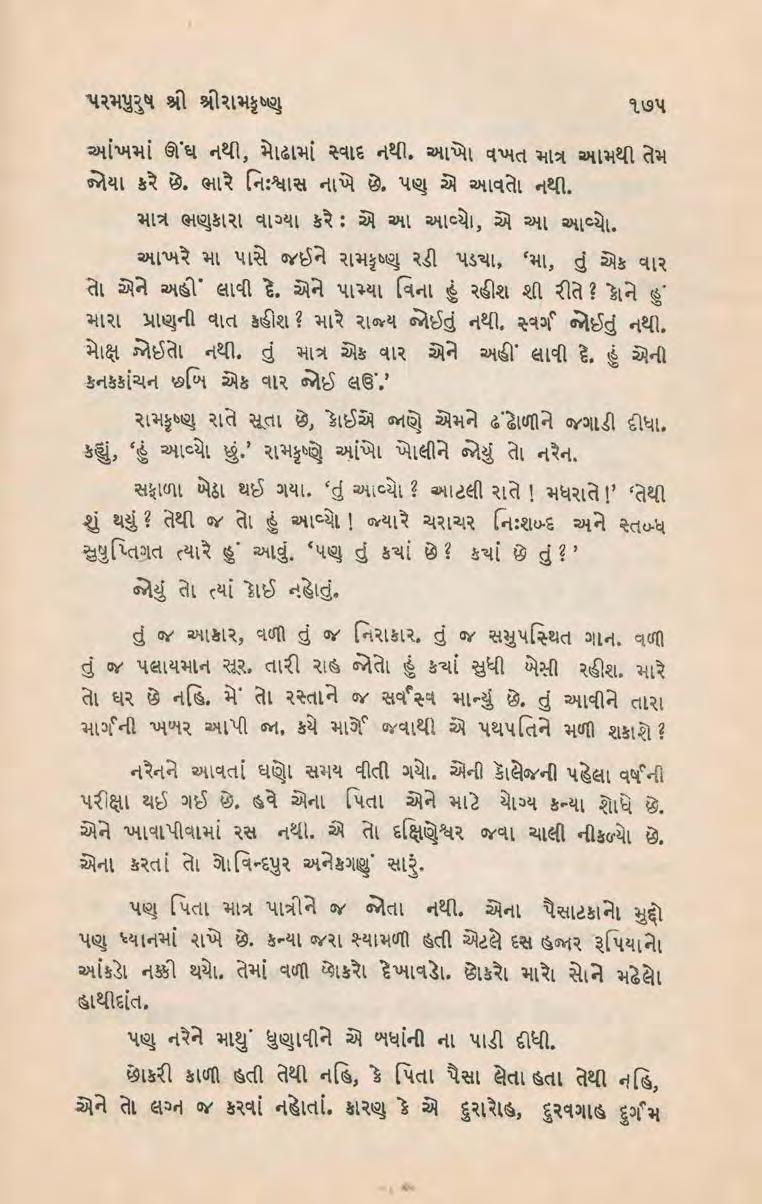 પરમપુરુષ શ્રી શ્રીરામકૃષ્ણ ૧૭૫
આંખમાં ઊંઘ નથી, મોઢામાં સ્વાદ નથી. આખો વખત માત્ર આમથી તેમ
જોયા કરે છે. ભારે નિઃશ્વાસ નાખે છે. પણ એ આવતો નથી.
માત્ર ભણકારા વાગ્યા કરે : એ આ આવ્યો, એ આ આવ્યો.
આખરે મા પાસે જઈને રામકૃષ્ણ રડી પડ્યા, ‘મા, તું એક વાર
તો એને અહીં લાવી દે. એને પામ્યા વિના હું રહીશ શી રીતે ? કોને હું
મારા પ્રાણની વાત કહીશ ? મારે રાજ્ય જોઈતું નથી. સ્વર્ગ જોઈતું નથી.
મોક્ષ જોઈતો નથી. તું માત્ર એક વાર એને અહીં લાવી દે. હું એની
કનકકાંચન છબિ એક વાર જોઈ લઉં.’
રામકૃષ્ણ રાતે સૂતા છે, કોઈએ જાણે એમને ઢંઢોળીને જગાડી દીધા.
કહ્યું, ‘હું આવ્યો છું.’ રામકૃષ્ણે આંખો ખોલીને જોયું તો નરેન.
સફાળા બેઠા થઈ ગયા. ‘તું આવ્યો ? આટલી રાતે ! મધરાતે !’ ‘તેથી
શું થયું ? તેથી જ તો હું આવ્યો ! જ્યારે ચરાચર નિઃશબ્દ અને સ્તબ્ધ
સુષુપ્તિગ્રત ત્યારે હું આવું. ‘પણ તું ક્યાં છે ? ક્યાં છે તું ?’
જોયું તો ત્યાં કોઈ નહોતું.
તું જ આકાર, વળી તું જ નિરાકાર. તું જ સમુપસ્થિત ગાન. વળી
તું જ પલાયમાન સૂર. તારી રાહ જોતો હું ક્યાં સુધી બેસી રહીશ. મારે
તો ઘર છે નહિ. મેં તો રસ્તાને જ સર્વસ્વ માન્યું છે. તું આવીને તારા
માર્ગની ખબર આપી જા. કયે માર્ગે જવાથી એ પથપતિને મળી શકાશે ?
નરેનને આવતાં ઘણો સમય વીતી ગયો. એની કૉલેજની પહેલા વર્ષની
પરીક્ષા થઈ ગઈ છે. હવે એના પિતા એને માટે યોગ્ય કન્યા શોધે છે.
એને ખાવાપીવામાં રસ નથી. એ તો દક્ષિણેશ્વર જવા ચાલી નીકળ્યો છે.
એના કરતાં તો ગોવિન્દપુર અનેકગણું સારું.
પણ પિતા માત્ર પાત્રીને જ જોતા નથી. એના પૈસાટકાનો મુદ્દો
પણ ધ્યાનમાં રાખે છે. કન્યા જરા શ્યામળી હતી એટલે દસ હજાર રૂપિયાનો
આંકડો નક્કી થયો. તેમાં વળી છોકરો દેખાવડો. છોકરો મારો સોને મઢેલો
હાથીદાંત.
પણ નરેને માથું ધુણાવીને એ બધાંની ના પાડી દીધી.
છોકરી કાળી હતી તેથી નહિ, કે પિતા પૈસા લેતા હતા તેથી નહિ,
એને તો લગ્ન જ કરવાં નહોતાં. કારણ કે એ દુરારોહ, દુરવગાહ દુર્ગમ